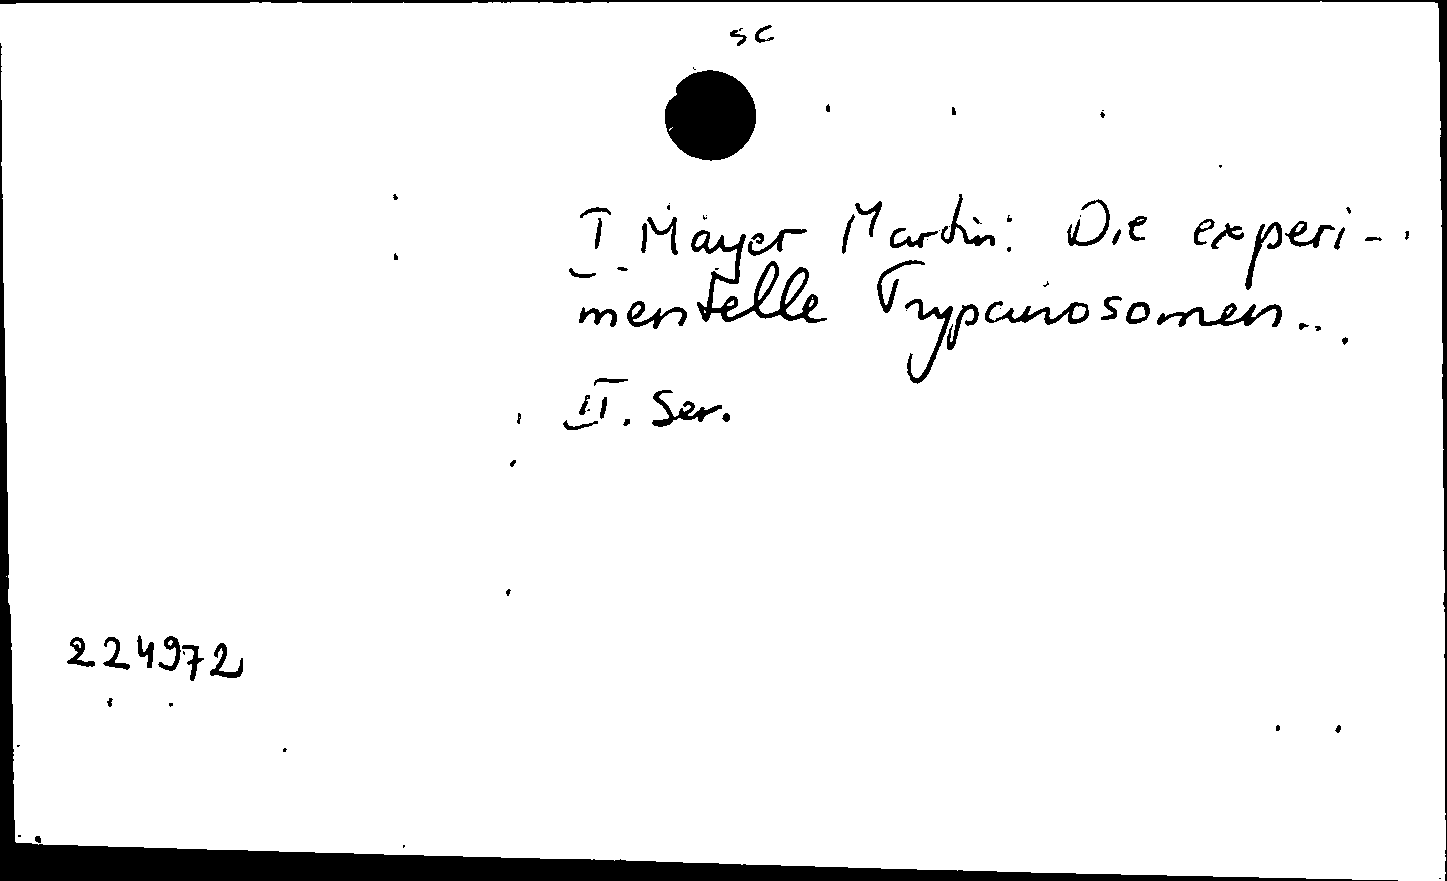 sc
I Mayer Martin: Die experi-
mentelle Trypanosomen...
II. Ser.
224972